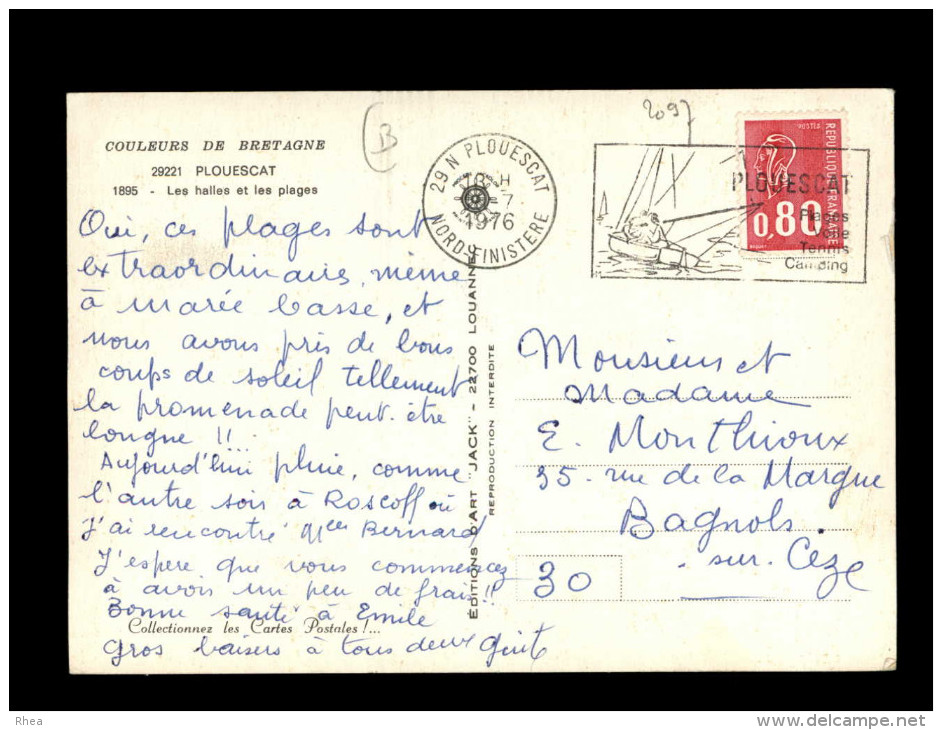 COULEURS DE BRETAGNE
29221 PLOUESCAT
1895 - Les halles et les plages
Oui, ces plages sont
extraordinaires, même
à marée basse, et
nous avons pris de bons
coups de soleil tellement
la promenade peut-être
longue !!
Aujourd'hui pluie, comme
l'autre soir à Roscoff où
J'ai rencontré Bernard
J'espere que vous commencez
à avoir un peu de frais !!
Bonne santé à Emile
Collectionnez les Cartes Postales !...
Gros baisers à tous deux
B
2097
29 N PLOUESCAT
18 H
-7
1976
NORD-FINISTERE
PLOUESCAT
Plages
Voile
Tennis
Camping
POSTES
0,80
REPUBLIQUE FRANÇAISE
EDITIONS D'ART "JACK" - 22700 LOUANNEC
REPRODUCTION INTERDITE
Monsieur et
Madame
E. Monthioux
35 - rue de la Margue
Bagnols.
- sur - Ceze
30
Rhea
http://www.delcampe.net